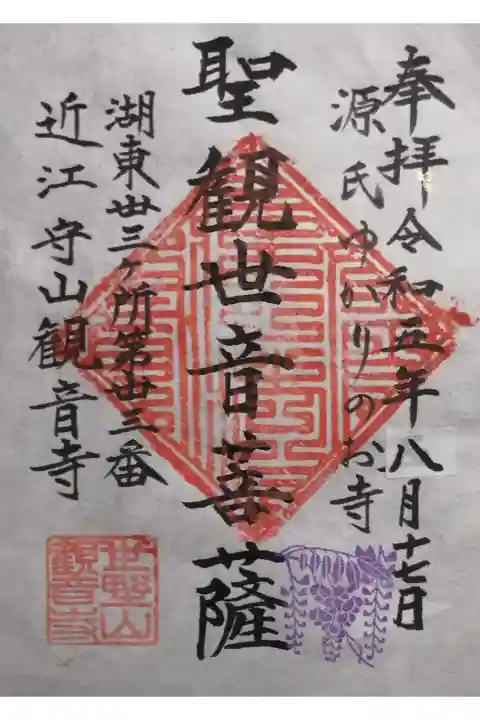 奉拝令和五年八月十七日
源氏ゆかりのお寺
聖観世音菩薩
湖東丗三ヶ所第丗三番
近江守山観音寺
観音寺